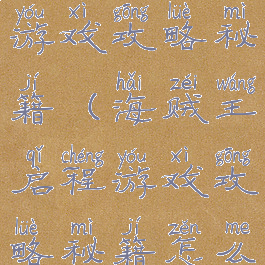 yóu xì gōng lüè mì
游戏攻略秘
jí hǎi zéi wáng
籍（海贼王
qǐ chéng yóu xì gōng
启程游戏攻
lüè mì jí zěn me
略秘籍怎么